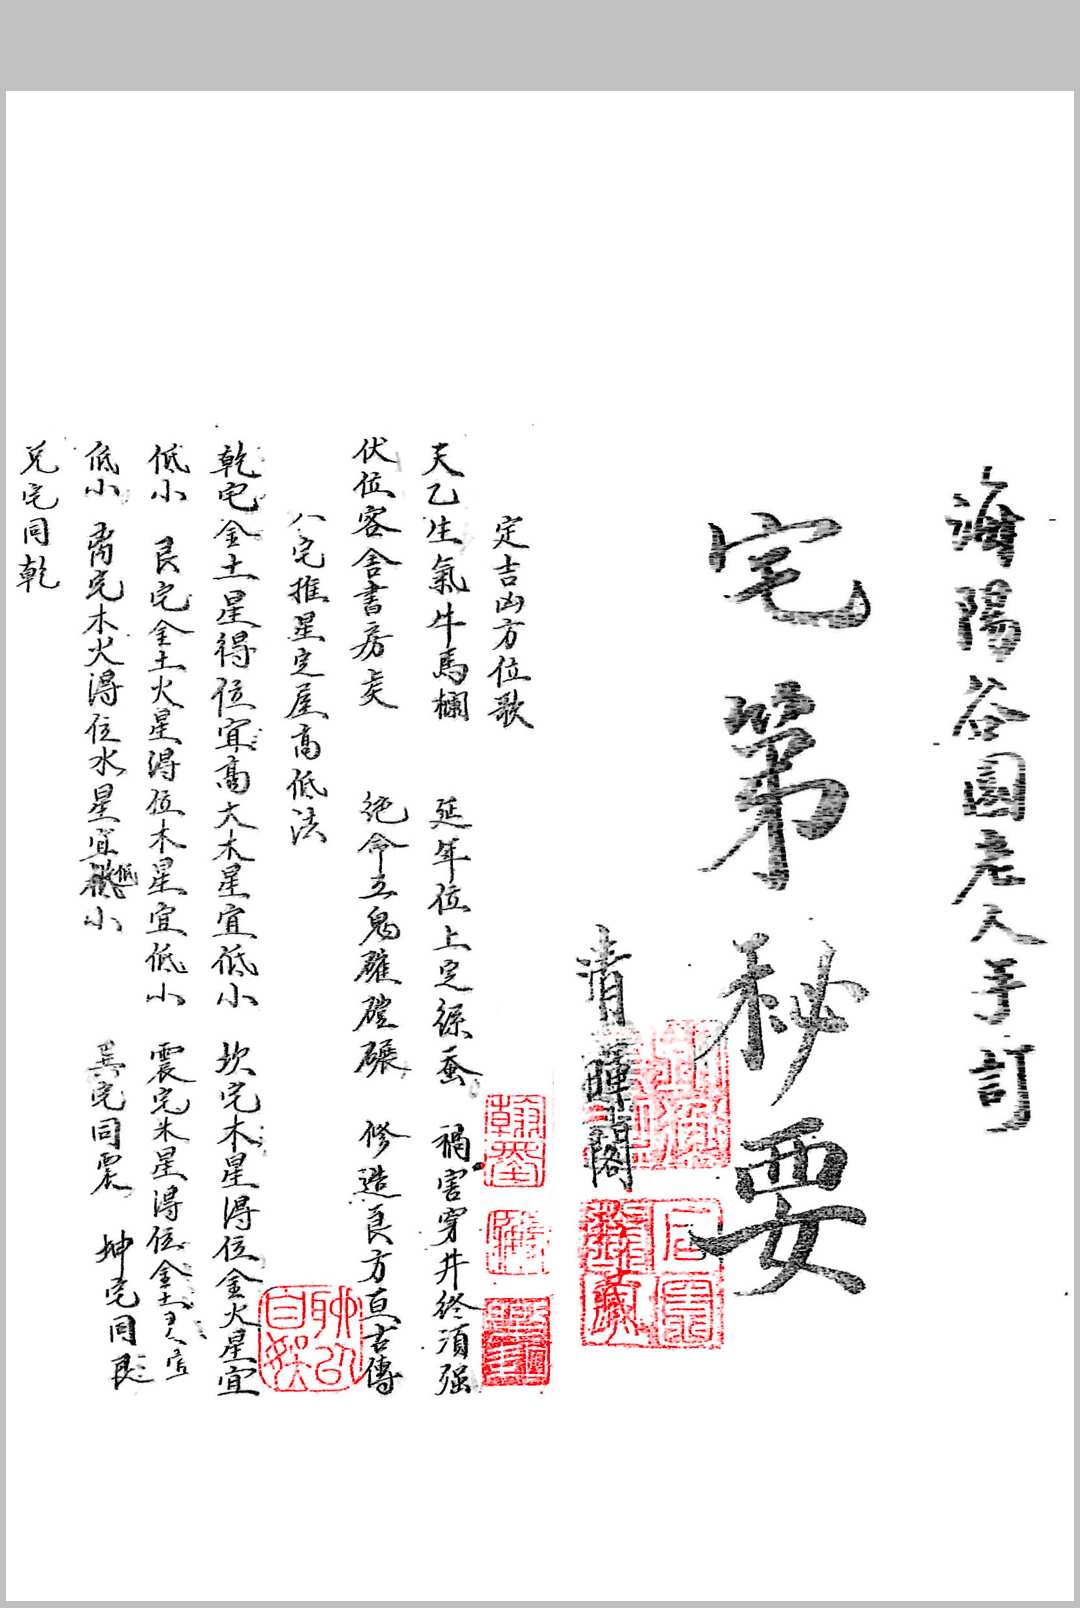 海陽谷園老人手訂
宅第秘要
清暉閣
定吉凶方位歌
天乙生氣牛馬欄 延年位上定綵蚕 禍害穿井終須强
伏位客舍書房吳 絶命五鬼碓磑碾 修造良方亘古傳
八宅推星定屋高低法
乾宅金土星得位宜高大木星宜低小 坎宅木星得位金火星宜
低小 艮宅金土火星得位木星宜低小 震宅木星得位金土星宜
低小 离宅木火得位水星宜低小 巽宅同震 坤宅同艮
兑宅同乾
翰墨
聊以自娱